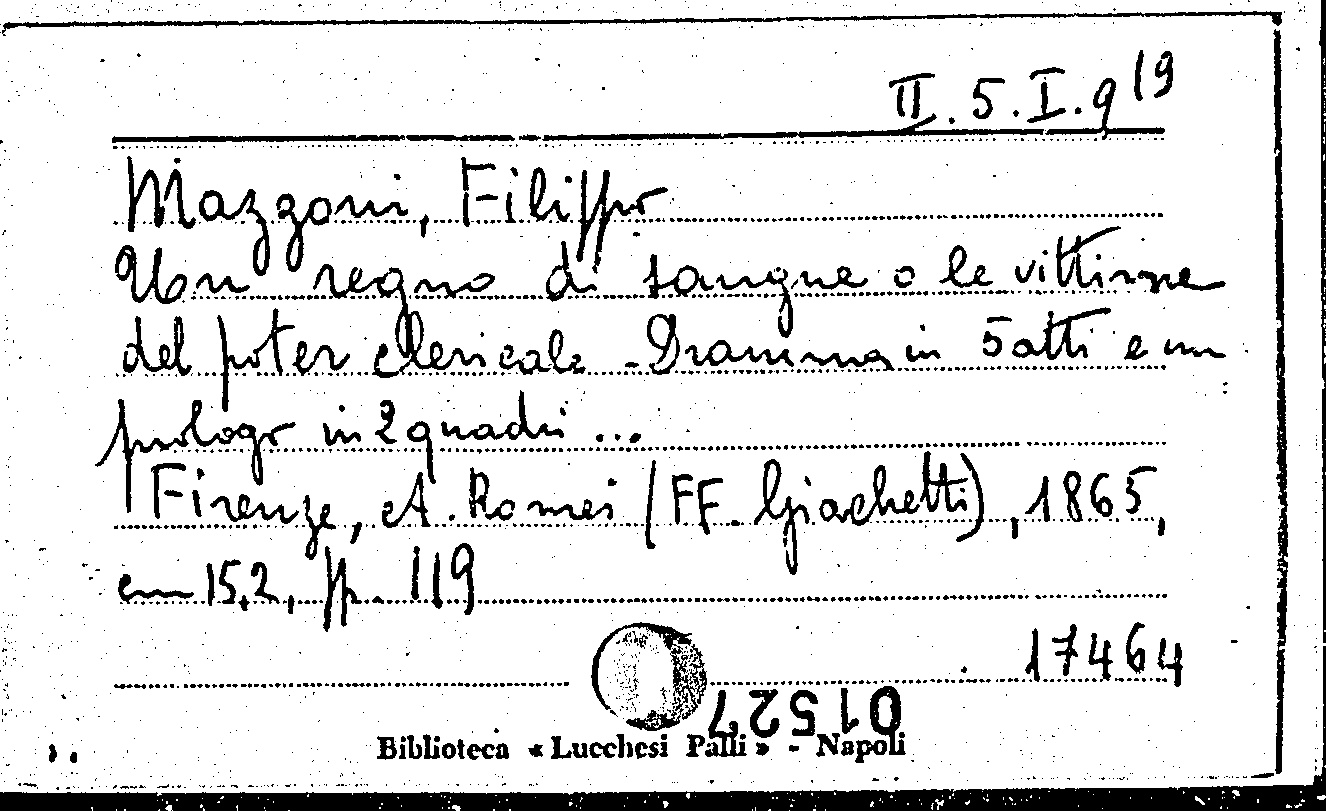 II.5.I.9 (9
Mazzoni, Filippo
Un regno di sangue o le vittime
del poter clericale - Dramma in 5 atti e un
prologo in 2 quadri ...
Firenze, A. Romei (FF. Giachetti), 1865,
cm 15,2, pp. 119
17464
01527
Biblioteca « Lucchesi Palli » - Napoli